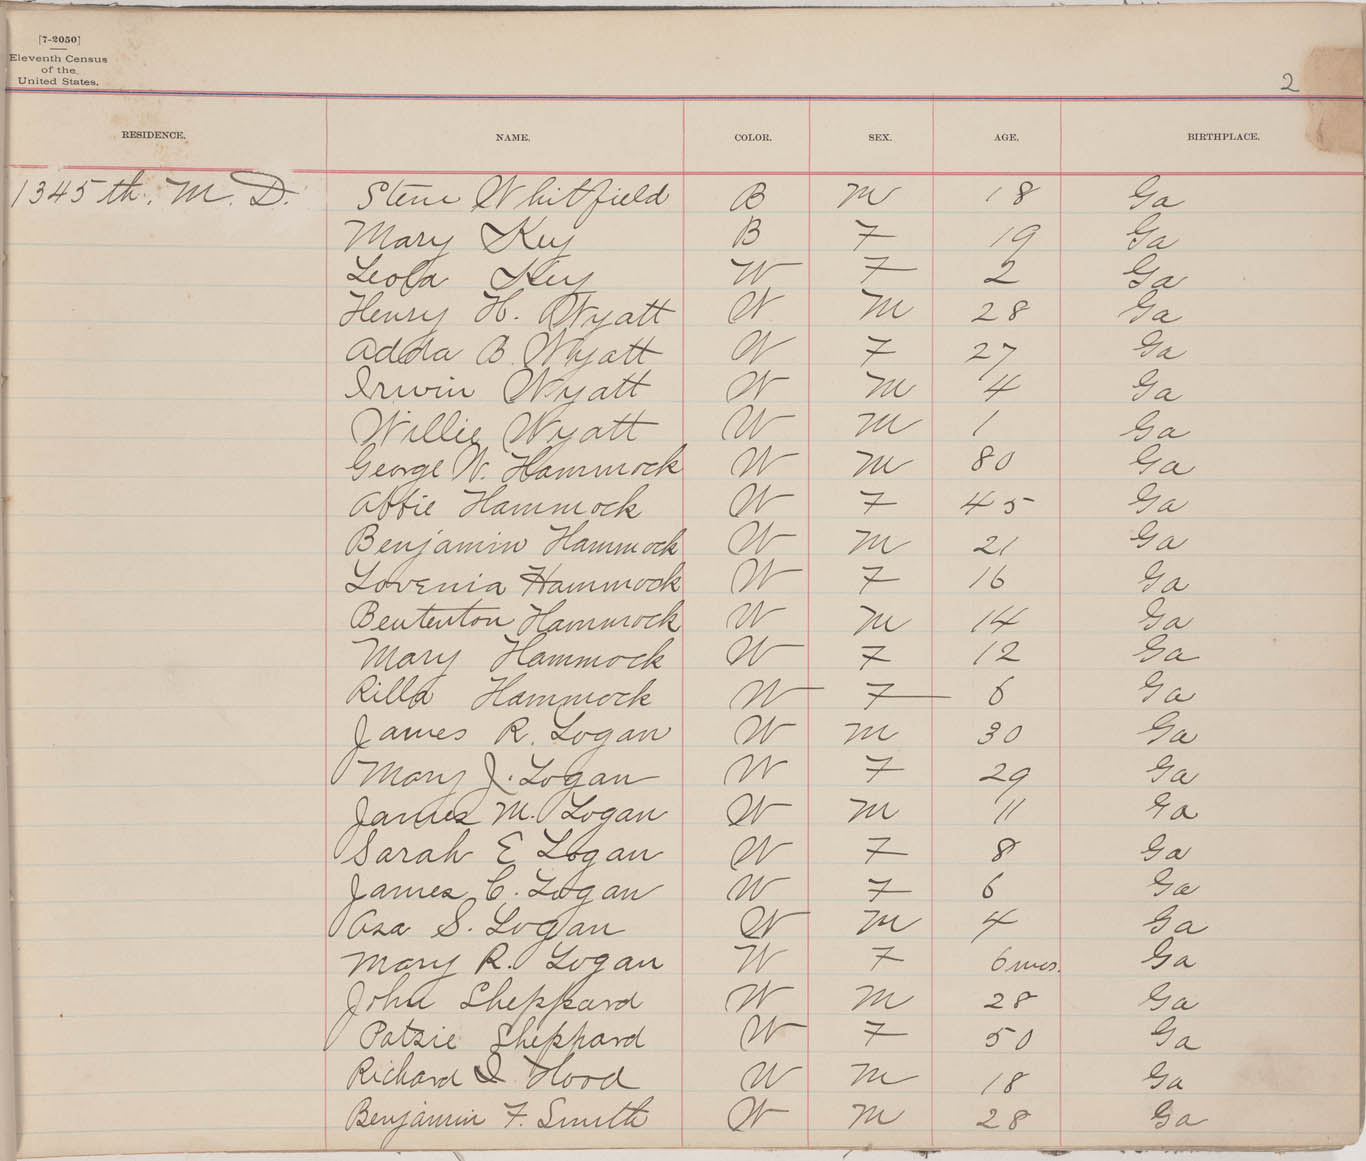 [7-2050]
Eleventh Census
of the
United States.
2
RESIDENCE. NAME. COLOR. SEX. AGE. BIRTHPLACE.
1345th. M. D. Steve Whitfield B M 18 Ga
Mary Key B F 19 Ga
Leola Key W F 2 Ga
Henry H. Wyatt W M 28 Ga
Adda B. Wyatt W F 27 Ga
Irwin Wyatt W M 4 Ga
Willie Wyatt W M 1 Ga
George W. Hammock W M 80 Ga
Abbie Hammock W F 45 Ga
Benjamin Hammock W M 21 Ga
Lovenia Hammock W F 16 Ga
Hammock W M 14 Ga
Mary Hammock W F 12 Ga
Rilla Hammock W F 6 Ga
James R. Logan W M 30 Ga
Mary J. Logan W F 29 Ga
James M. Logan W M 11 Ga
Sarah E Logan W F 8 Ga
James C. Logan W F 6 Ga
Asa S. Logan W M 4 Ga
Mary R. Logan W F 6 mos. Ga
John Sheppard W M 28 Ga
Patsie Sheppard W F 50 Ga
Richard I Hood W M 18 Ga
Benjamin F. Smith W M 28 Ga